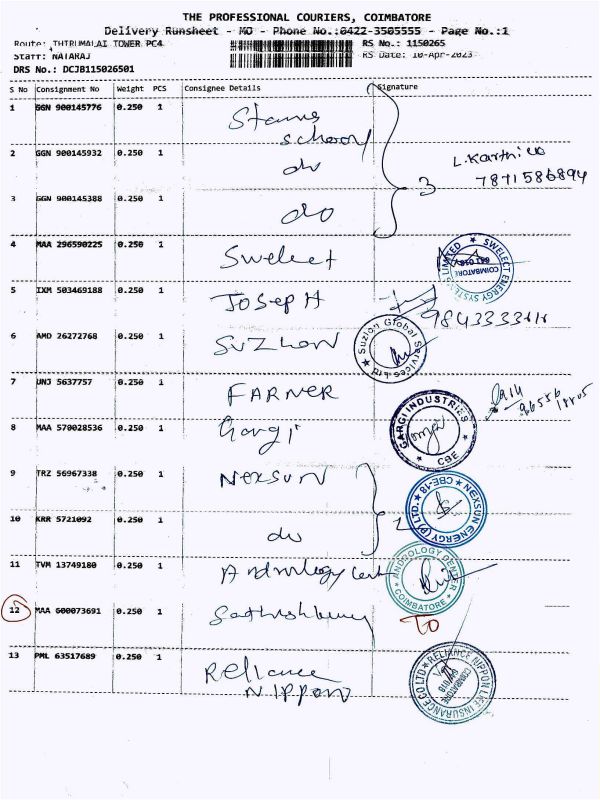 THE PROFESSIONAL COURIERS, COIMBATORE
Delivery Runsheet - MO - Phone No.:0422-3505555 - Page No.:1
Route: THIRUMALAI TOWER PC4 RS No.: 1150265
Staff: NATARAJ RS Date: 10-Apr-2023
DRS No.: DCJB115026501
S No Consignment No Weight PCS Consignee Details Signature
1 GGN 900145776 0.250 1 Stanes school
2 GGN 900145932 0.250 1 do L. Karthi 7871586894
3 GGN 900145388 0.250 1 do 3
4 MAA 296590225 0.250 1 Swelect SWELECT ENERGY SYSTEMS LIMITED COIMBATORE
5 IXM 503469188 0.250 1 JOSEPH
6 AMD 26272768 0.250 1 SUZLON Suzlon Global Services Ltd
7 UNJ 5637757 0.250 1 FARNER
8 MAA 570028536 0.250 1 Gargi GARGI INDUSTRIES CBE
9 TRZ 56967338 0.250 1 Nexsun NEXSUN ENERGY (P) LTD. CBE-18
10 KRR 5721092 0.250 1 do 2
11 TVM 13749180 0.250 1 Andrology ANDROLOGY CENTER COIMBATORE
12 MAA 600073691 0.250 1 TO
13 PML 63517689 0.250 1 Reliance NIPPON RELIANCE NIPPON LIFE INSURANCE CO LTD COIMBATORE